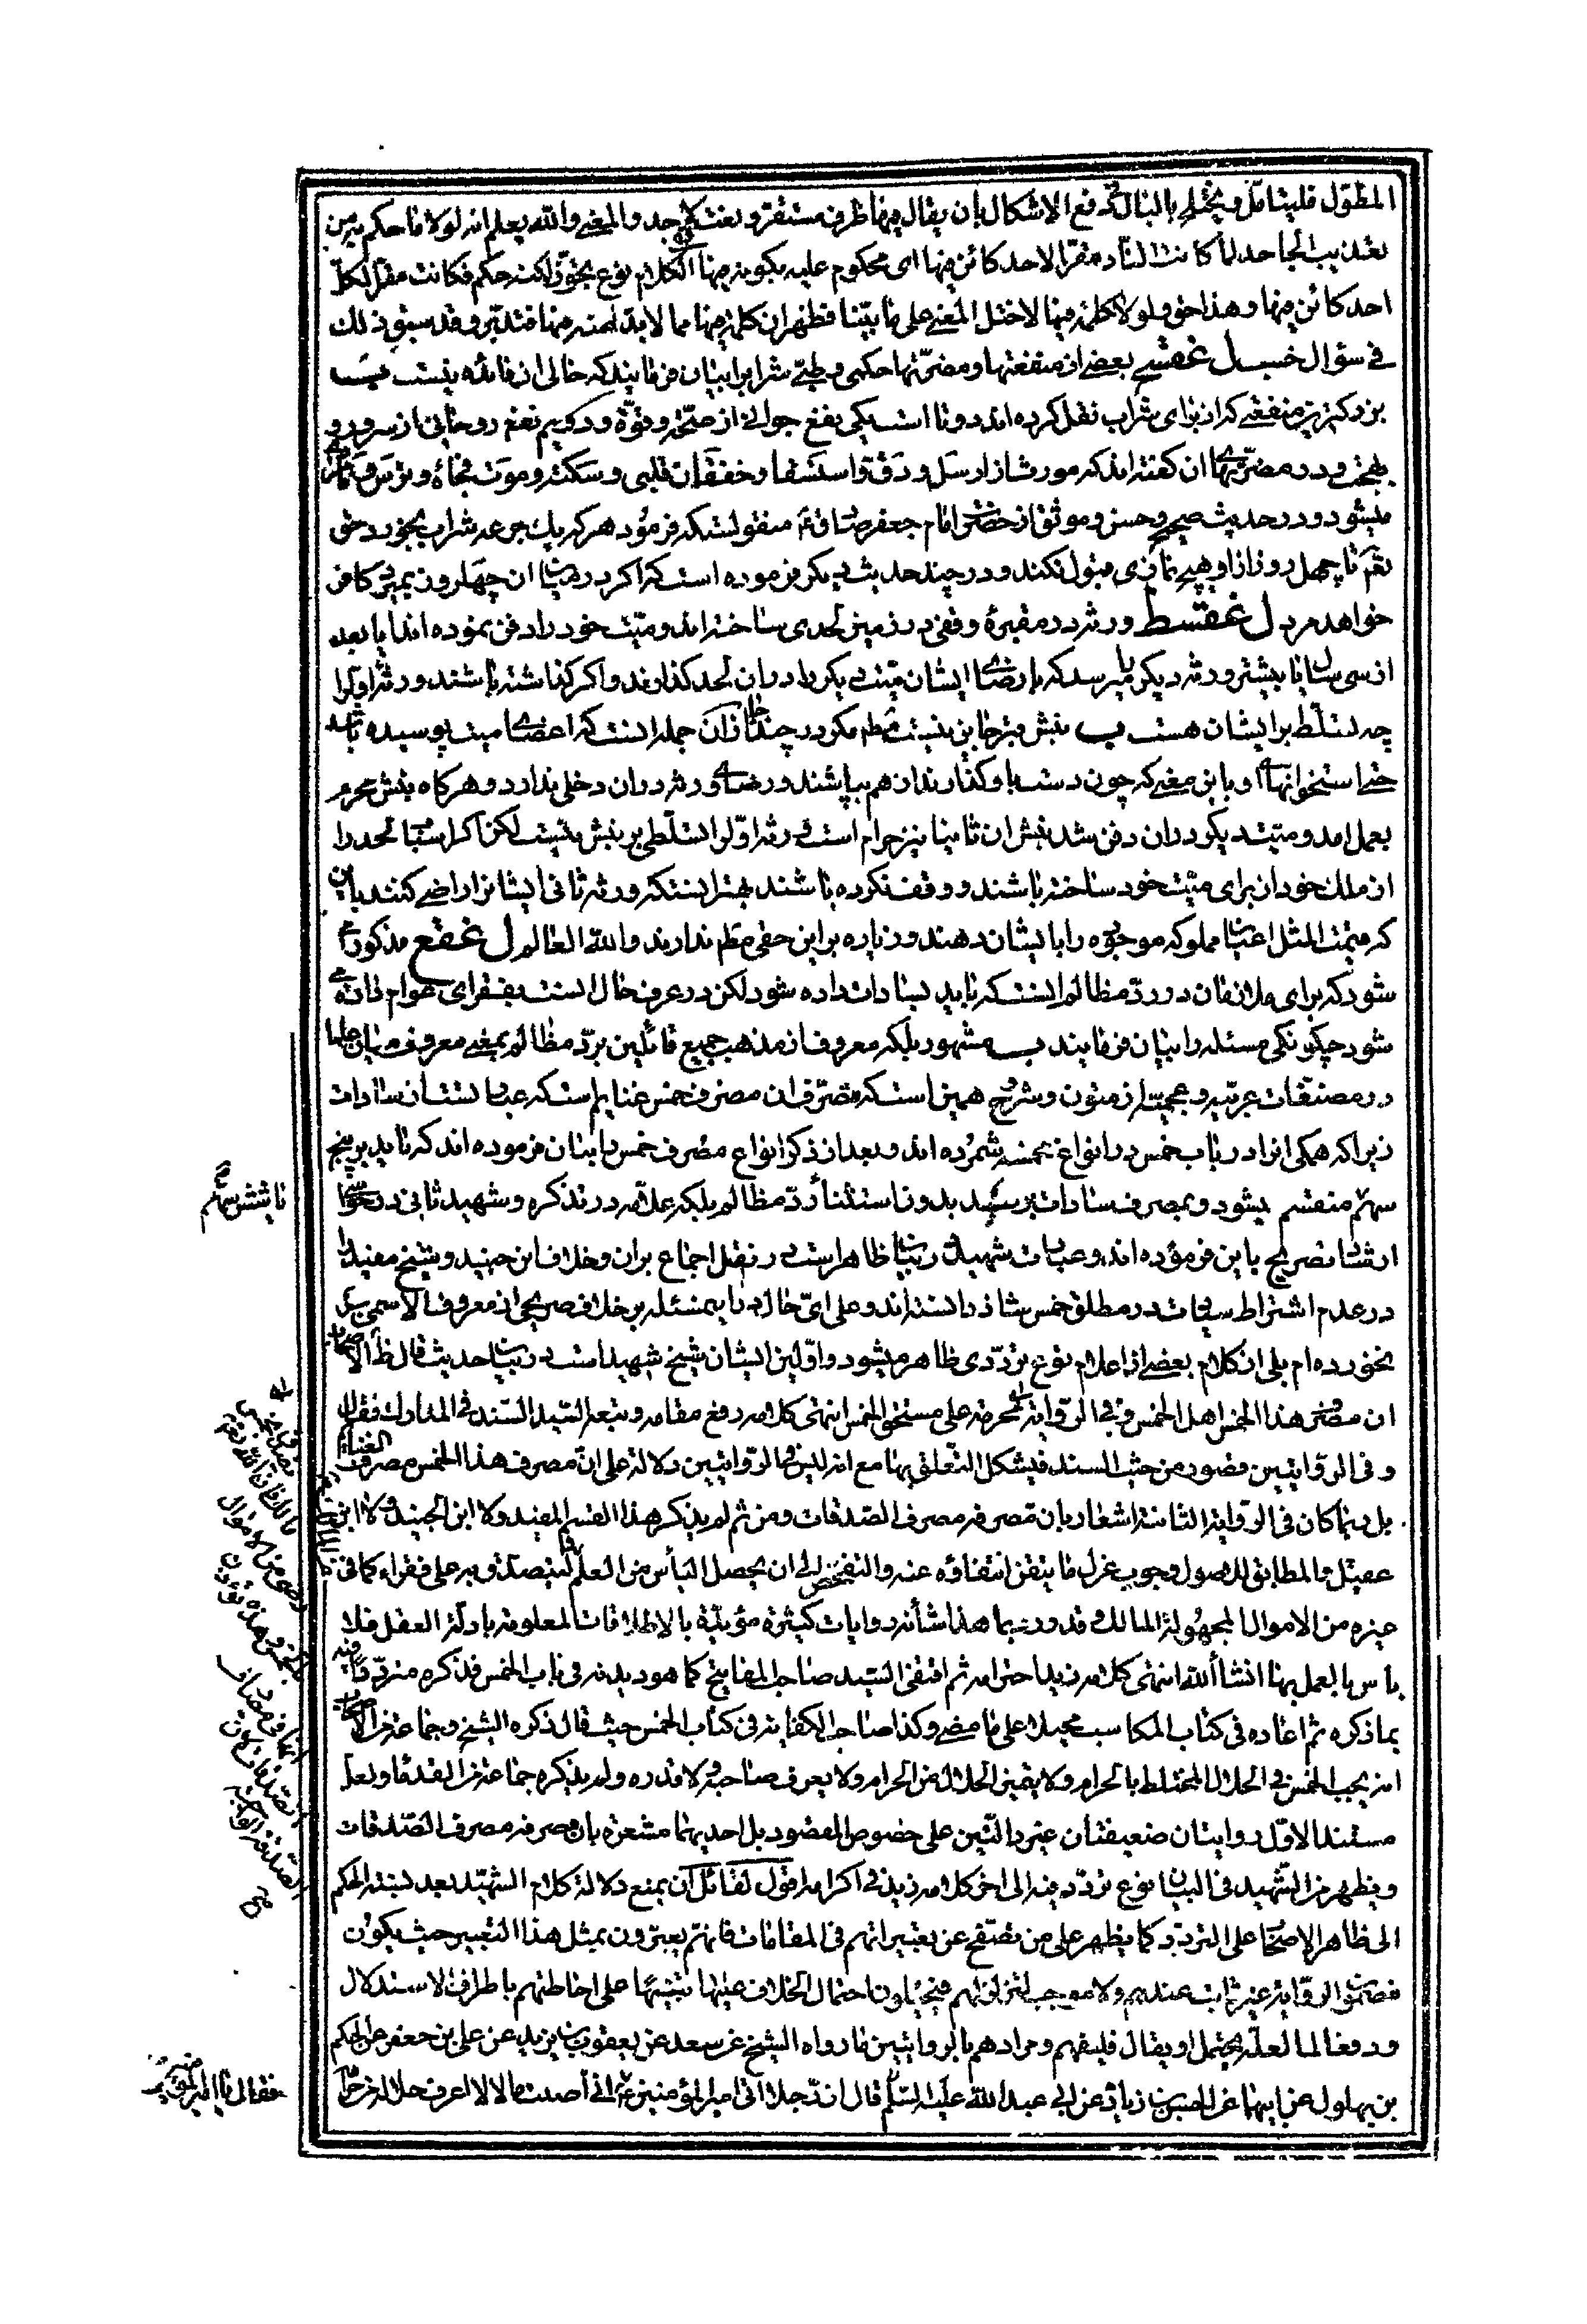 المطوّل فليتأمّل و يختلج بالبال في دفع الاشكال بان يقال فيها ظرف مستقر و نعت لاحد و المعنى و الله يعلم انه لولا ما حكم به من
تعذيب الجاحد لما كانت النّار مقرّا لاحد كائن فيها اى محكوم عليه بكونه فيها و فى الكلام نوع تجوّز لكنه حكم فكانت مقرّا لكلّ
احد كائن فيها و هذا حق و لولا كلمة فيها لاختل المعنى على ما بيّنا فظهر ان كلمة فيها مما لا بدّ منه فتدبّر و قد سبق ذلك
فى سؤال خبسل غفشے بعضى از منفعتها و مضرّتها حكمى و طبّى شراب را بيان فرمايند كه خالى از فائده نيست ب
بزركترين منفعتى كه از براى شراب نقل كرده اند دو تا است يكى نفع از صحّة و قوّة و دويم نفع روحانى از سرور و
بهجت و در مضرّتهاى ان كفته اند كه مورث ازار سل و دق و استسقا و خفقان قلبى و سكته و موت فجأة و
ميشود و در حديث صحيح و حسن و موثق از حضرت امام جعفر صادق ع منقولست كه فرمود هر كه يك جرعه شراب بخورد حق
تعم تا چهل روز از او هيچ نمازى قبول نكند و در چند حديث ديكر فرموده است كه اكر در ميان ان چهل روز بميرد كافر
خواهد مرد ل غفسط ورثه در مقبرۀ وقفى در زمين لحدى ساخته اند و ميّت خود را دفن نموده اند ايا بعد
از سى سال يا بيشتر ورثه ديكر را ميرسد كه بى رضاى ايشان ميّت ديكر را در ان لحد كذارند و اكر كذاشته باشند ورثه اولى را
چه تسلّط بر ايشان هست ب نبش قبر جايز نيست مكر در چند جا از آن جمله اينست كه اعضاى ميت پوسيده باشد
حتى استخوانهاى او باين معنى كه چون دست باو كذارند از هم بپاشند و رضاى ورثه در ان دخلى ندارد و هر كاه نبش محرم
بعمل امد و ميّت ديكر در ان دفن شد نبش ان ثانيا نيز حرام است و ورثه اوّل را تسلّطى بر نبش نيست لكن اكر اسباب لحد را
از ملك خود ان براى ميّت خود ساخته باشند و وقف نكرده باشند بهتر اينست كه ورثه ثانى ايشانرا راضى كنند باين
كه قيمت المثل اعيان مملوكه موجوده را بايشان دهند و زياده بر اين حقى ندارند و الله العالم ل غفع مذكور مى
شود كه براى ملازمان در ردّ مظالم اينست كه بايد بسادات داده شود لكن در عرف حال است بفقراى عوام داده مى
شود چكونكى مسئله را بيان فرمايند ب مشهور بلكه معروف از مذهب جميع قائلين بردّ مظالم بمعنى معروف ميان علما
در مصنّفات عربيّه و عجميّه از متون و شروح همين است كه مصرف ان مصرف خمس غنايم است كه عبارتست از سادات
زيرا كه همكى انرا در باب خمس در انواع خمسه شمرده اند و بعد از ذكر انواع مصرف خمس را بيان فرموده اند كه بايد بر پنج
سهم منقسم بشود و بمصرف سادات برسد بدون استثناء ردّ مظالم بلكه علامه در تذكره و شهيد ثانى در حواشى
ارشاد تصريح باين فرموده اند و عبارت شهيد در بيان ظاهر است در نقل اجماع بر ان و خلاف ابن جنيد و شيخ مفيد را
در عدم اشتراط سيادت در مطلق خمس شاذ دانسته اند و على اىّ حال در اين مسئله بر خلاف صريحى از معروف الاسمى بر
نخورده ام بلى از كلام بعضى از اعلام نوع تردّدى ظاهر ميشود و اوّلين ايشان شيخ شهيد است در بيان حديث قال ظ الاصحاب
ان مصرف هذا الخمس اهل الخمس و فى الرّواية لمحرمة على مستحق الخمس انتهى كلامه رفع مقامه و تبعه السّيد السّند فى المدارك فقال
و فى الرّوايتين قصور من حيث السند فيشكل التّعلق بهما مع انه ليس فى الرّوايتين دلالة على انّ مصرف هذا الخمس مصرف الغنائم
بل ربما كان فى الرّواية الثّانية اشعار بان مصرفه مصرف الصّدقات و من ثم لم يذكر هذا القسم المفيد و لا ابن الجنيد و لا ابن
عقيل و المطابق للاصول وجوب عزل ما يتيقن انتفاؤه عنه و التفحّص الى ان يحصل اليأس من العلم فيتصدق به على فقراء كما فى
غيره من الاموال المجهولة المالك و قد ورد بما هذا شأنه روايات كثيرة مؤيدة بالاطلاقات المعلومة بادلّة العقل فلا
بأس بالعمل بها انشاء الله انتهى كلامه زيد احترامه ثم اقتفى السّيد صاحب المفاتيح كما هو ديدنه فى باب الخمس فذكره متردّدا فيه
بما ذكره ثم اعاده فى كتاب المكاسب محيلا على ما مضى و كذا صاحب الكفاية فى كتاب الخمس حيث قال ذكره الشيخ و جماعة من الاصحاب
انه يجب الخمس فى الحلال المختلط بالحرام و لا يتميز الحلال من الحرام و لا يعرف صاحبه و لا قدره و لم يذكره جماعة من القدماء و لعل
مستند الاوّل روايتان ضعيفتان غير دالّتين على خصوص المقصود بل احديهما مشعرة بان مصرفه مصرف الصّدقات
و يظهر من الشّهيد فى البيان نوع تردّد فيه الى اخر كلامه زيد فى اكرامه اقول لقائل ان يمنع دلالة كلام الشّهيد بعد نسبته الحكم
الى ظاهر الاصحاب على التردّد كما يظهر على من تصفّح عن تعبيراتهم فى المقامات فانهم يعبرون بمثل هذا التعبير حيث يكون
مضمون الرّواية غير ثابت عندهم و لا موجب لتزلزلهم فيحيلون احتمال الخلاف عليها تنبيها على احاطتهم باطراف الاستدلال
و دفعا لما لعلّه يحتمل او يقال فليفهم و مرادهم بالروايتين ما رواه الشيخ عن سعد عن يعقوب بن يزيد عن على بن جعفر عن الحكم
بن بهلول عن ابى همام عن الحسن بن زياد عن ابى عبد الله عليه السّلم قال ان رجلا اتى امير المؤمنين ع انى اصبت مالا لا اعرف حلاله من حرامه
تا شش سهم
فقال يا امير المؤمنين